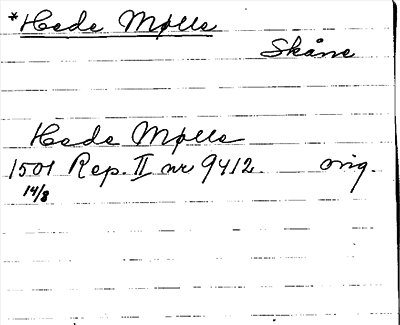 *Hede Mölle
Skåne
Hede Mölle
1501 Rep. II nr 9412. orig.
14/8